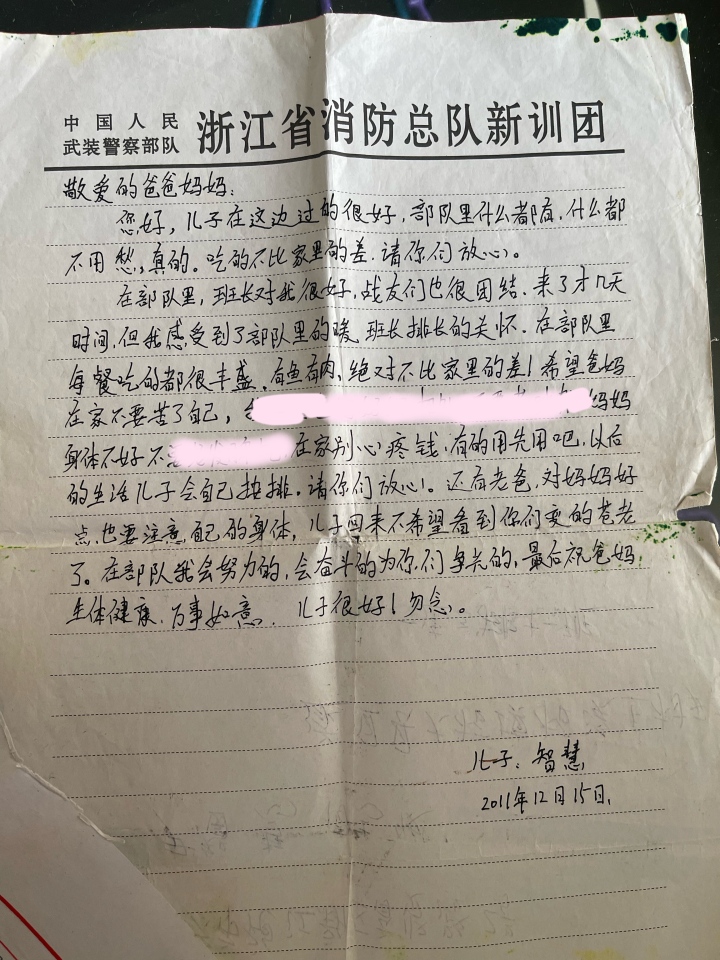 中国人民
武装警察部队 浙江省消防总队新训团
敬爱的爸爸妈妈:
您好,儿子在这边过的很好,部队里什么都有,什么都
不用愁,真的。吃的不比家里的差,请你们放心。
在部队里,班长对我很好,战友们也很团结,来了才几天
时间,但我感受到了部队里的暖,班长排长的关怀。在部队里
每餐吃的都很丰盛,有鱼有肉,绝对不比家里的差!希望爸妈
在家不要苦了自己, 妈妈
身体不好不 在家别心疼钱,有的用先用吧,以后
的生活儿子会自己按排,请你们放心!。还有老爸,对妈妈好
点,也要注意自己的身体,儿子回来不希望看到你们变的苍老
了。在部队我会努力的,会奋斗的为你们争光的,最后祝爸妈
生体健康,万事如意. 儿子很好!勿念。
儿子:智慧
2011年12月15日.